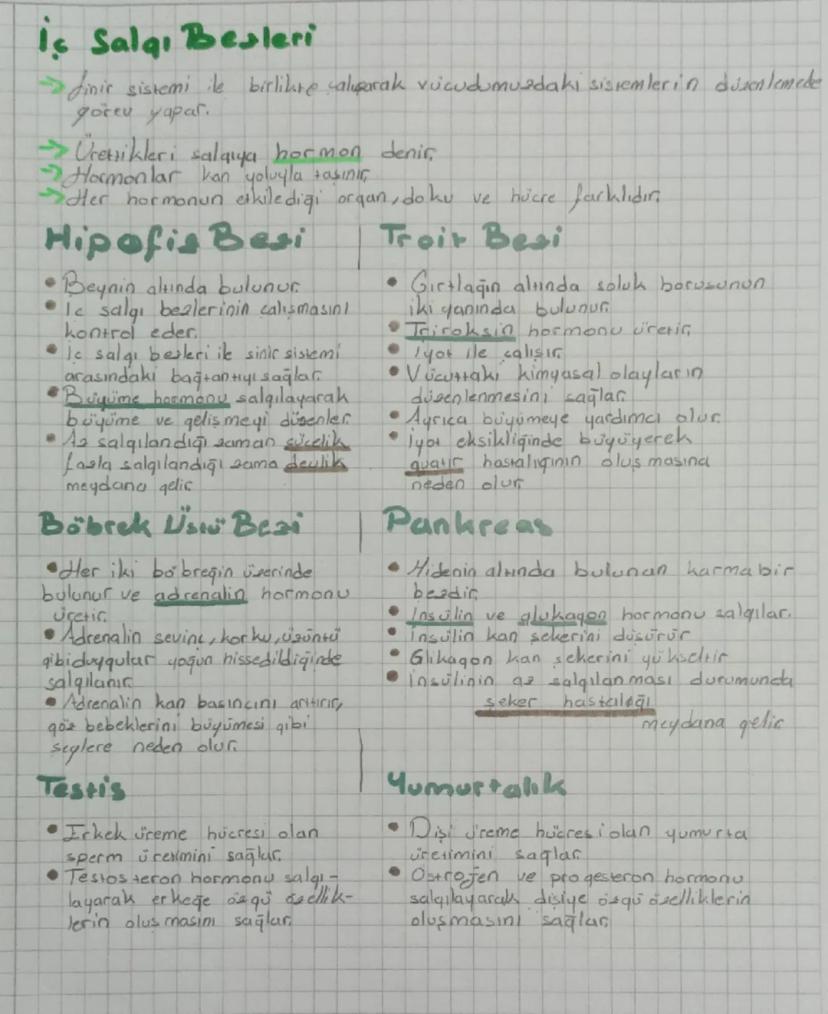 İç Salgı Bezleri
→ Sinir sistemi ile birlikte çalışarak vücudumuzdaki sistemlerin düzenlemede
görev yapar.
→ Ürettikleri salgıya hormon denir.
→ Hormonlar kan yoluyla taşınır.
→ Her hormonun etkilediği organ, doku ve hücre farklıdır.
Hipofiz Bezi
• Beynin altında bulunur.
• İç salgı bezlerinin çalışmasını
kontrol eder.
• İç salgı bezleri ile sinir sistemi
arasındaki bağlantıyı sağlar.
• Büyüme hormonu salgılayarak
büyüme ve gelişmeyi düzenler.
• Az salgılandığı zaman cücelik
fazla salgılandığı zama devlik
meydana gelir.
Troit Bezi
• Gırtlağın altında soluk borusunun
iki yanında bulunur.
• Tiroksin hormonu üretir.
• İyot ile çalışır.
• Vücuttaki kimyasal olayların
düzenlenmesini sağlar.
• Ayrıca büyümeye yardımcı olur.
• İyot eksikliğinde büyüyerek
guatr hastalığının oluşmasına
neden olur.
Böbrek Üstü Bezi
• Her iki böbreğin üzerinde
bulunur ve adrenalin hormonu
üretir.
• Adrenalin sevinç, korku, üzüntü
gibi duygular yoğun hissedildiğinde
salgılanır.
• Adrenalin kan basıncını artırır,
göz bebeklerini büyümesi gibi
şeylere neden olur.
Pankreas
• Midenin altında bulunan karma bir
bezdir.
• İnsülin ve glukagon hormonu salgılar.
• İnsülin kan şekerini düşürür
• Glikagon kan şekerini yükseltir
• İnsülinin az salgılanması durumunda
şeker hastalığı
meydana gelir
Testis
• Erkek üreme hücresi olan
sperm üretimini sağlar.
• Testosteron hormonu salgı-
layarak erkeğe özgü özellik-
lerin oluşmasını sağlar.
Yumurtalık
• Dişi üreme hücresi olan yumurta
üretimini sağlar.
• Östrojen ve progesteron hormonu
salgılayarak dişiye özgü özelliklerin
oluşmasını sağlar.